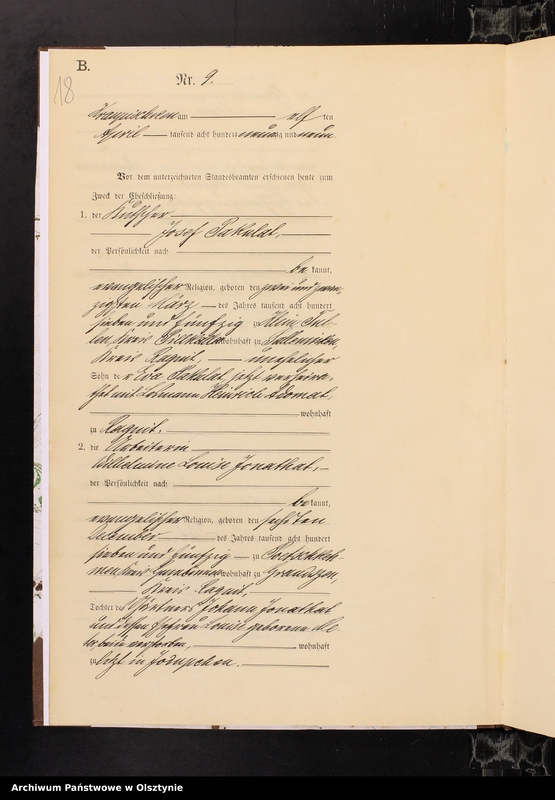 B.
18
Nr. 9.
Kraupischken am elf ten
April tausend acht hundert neunzig und neun
Vor dem unterzeichneten Standesbeamten erschienen heute zum
Zweck der Eheschließung:
1. der Kutscher
Josef Pakulat,
der Persönlichkeit nach
be kannt,
evangelischer Religion, geboren den zwei und zwan-
zigsten März des Jahres tausend acht hundert
sieben und fünfzig zu Klein Tul-
len, Kreis Pillkallen wohnhaft zu
Kreis Ragnit, unehelicher
Sohn der Eva Pakulat, jetzt verheira-
thet mit Losmann Heinrich Adomat,
wohnhaft
zu Ragnit.
2. die Arbeiterin
Wilhelmine Louise Jonathat,
der Persönlichkeit nach
be kannt,
evangelischer Religion, geboren den sechsten
December des Jahres tausend acht hundert
sieben und fünfzig zu
men, Kreis Gumbinnen wohnhaft zu
Kreis Ragnit,
Tochter des Gärtners Johann Jonathat
und dessen Ehefrau Louise geborene
beide verstorben, wohnhaft
zu letzt in Jodupchen.
Archiwum Państwowe w Olsztynie